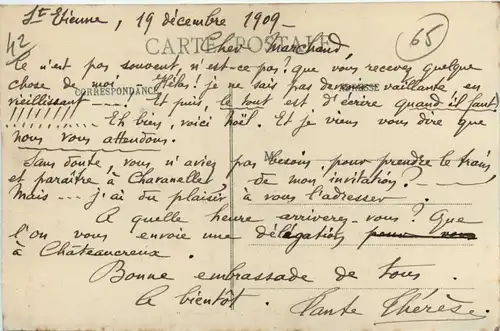 St Etienne, 19 décembre 1909-
42
65
CARTE POSTALE
Cher Marchand,
Ce n'est pas souvent, n'est-ce pas? que vous recevez quelque
CORRESPONDANCE
ADRESSE
chose de moi. Hélas! je ne sais pas devenir vaillante en
vieillissant ----. Et puis, le tout est d'écrire quand il faut.
!!!!!!!........ Eh bien, voici Noël. Et je viens vous dire que
nous vous attendons.
Sans doute, vous n'aviez pas besoin, pour prendre le train,
et paraître à Chavanelle, de mon invitation? -
Mais --- j'ai du plaisir à vous l'adresser.
A quelle heure arriverez-vous? Que
l'on vous envoie une délégation pour vous
à Châteaucreux.
Bonne embrassade de tous.
A bientôt. Tante Thérèse.